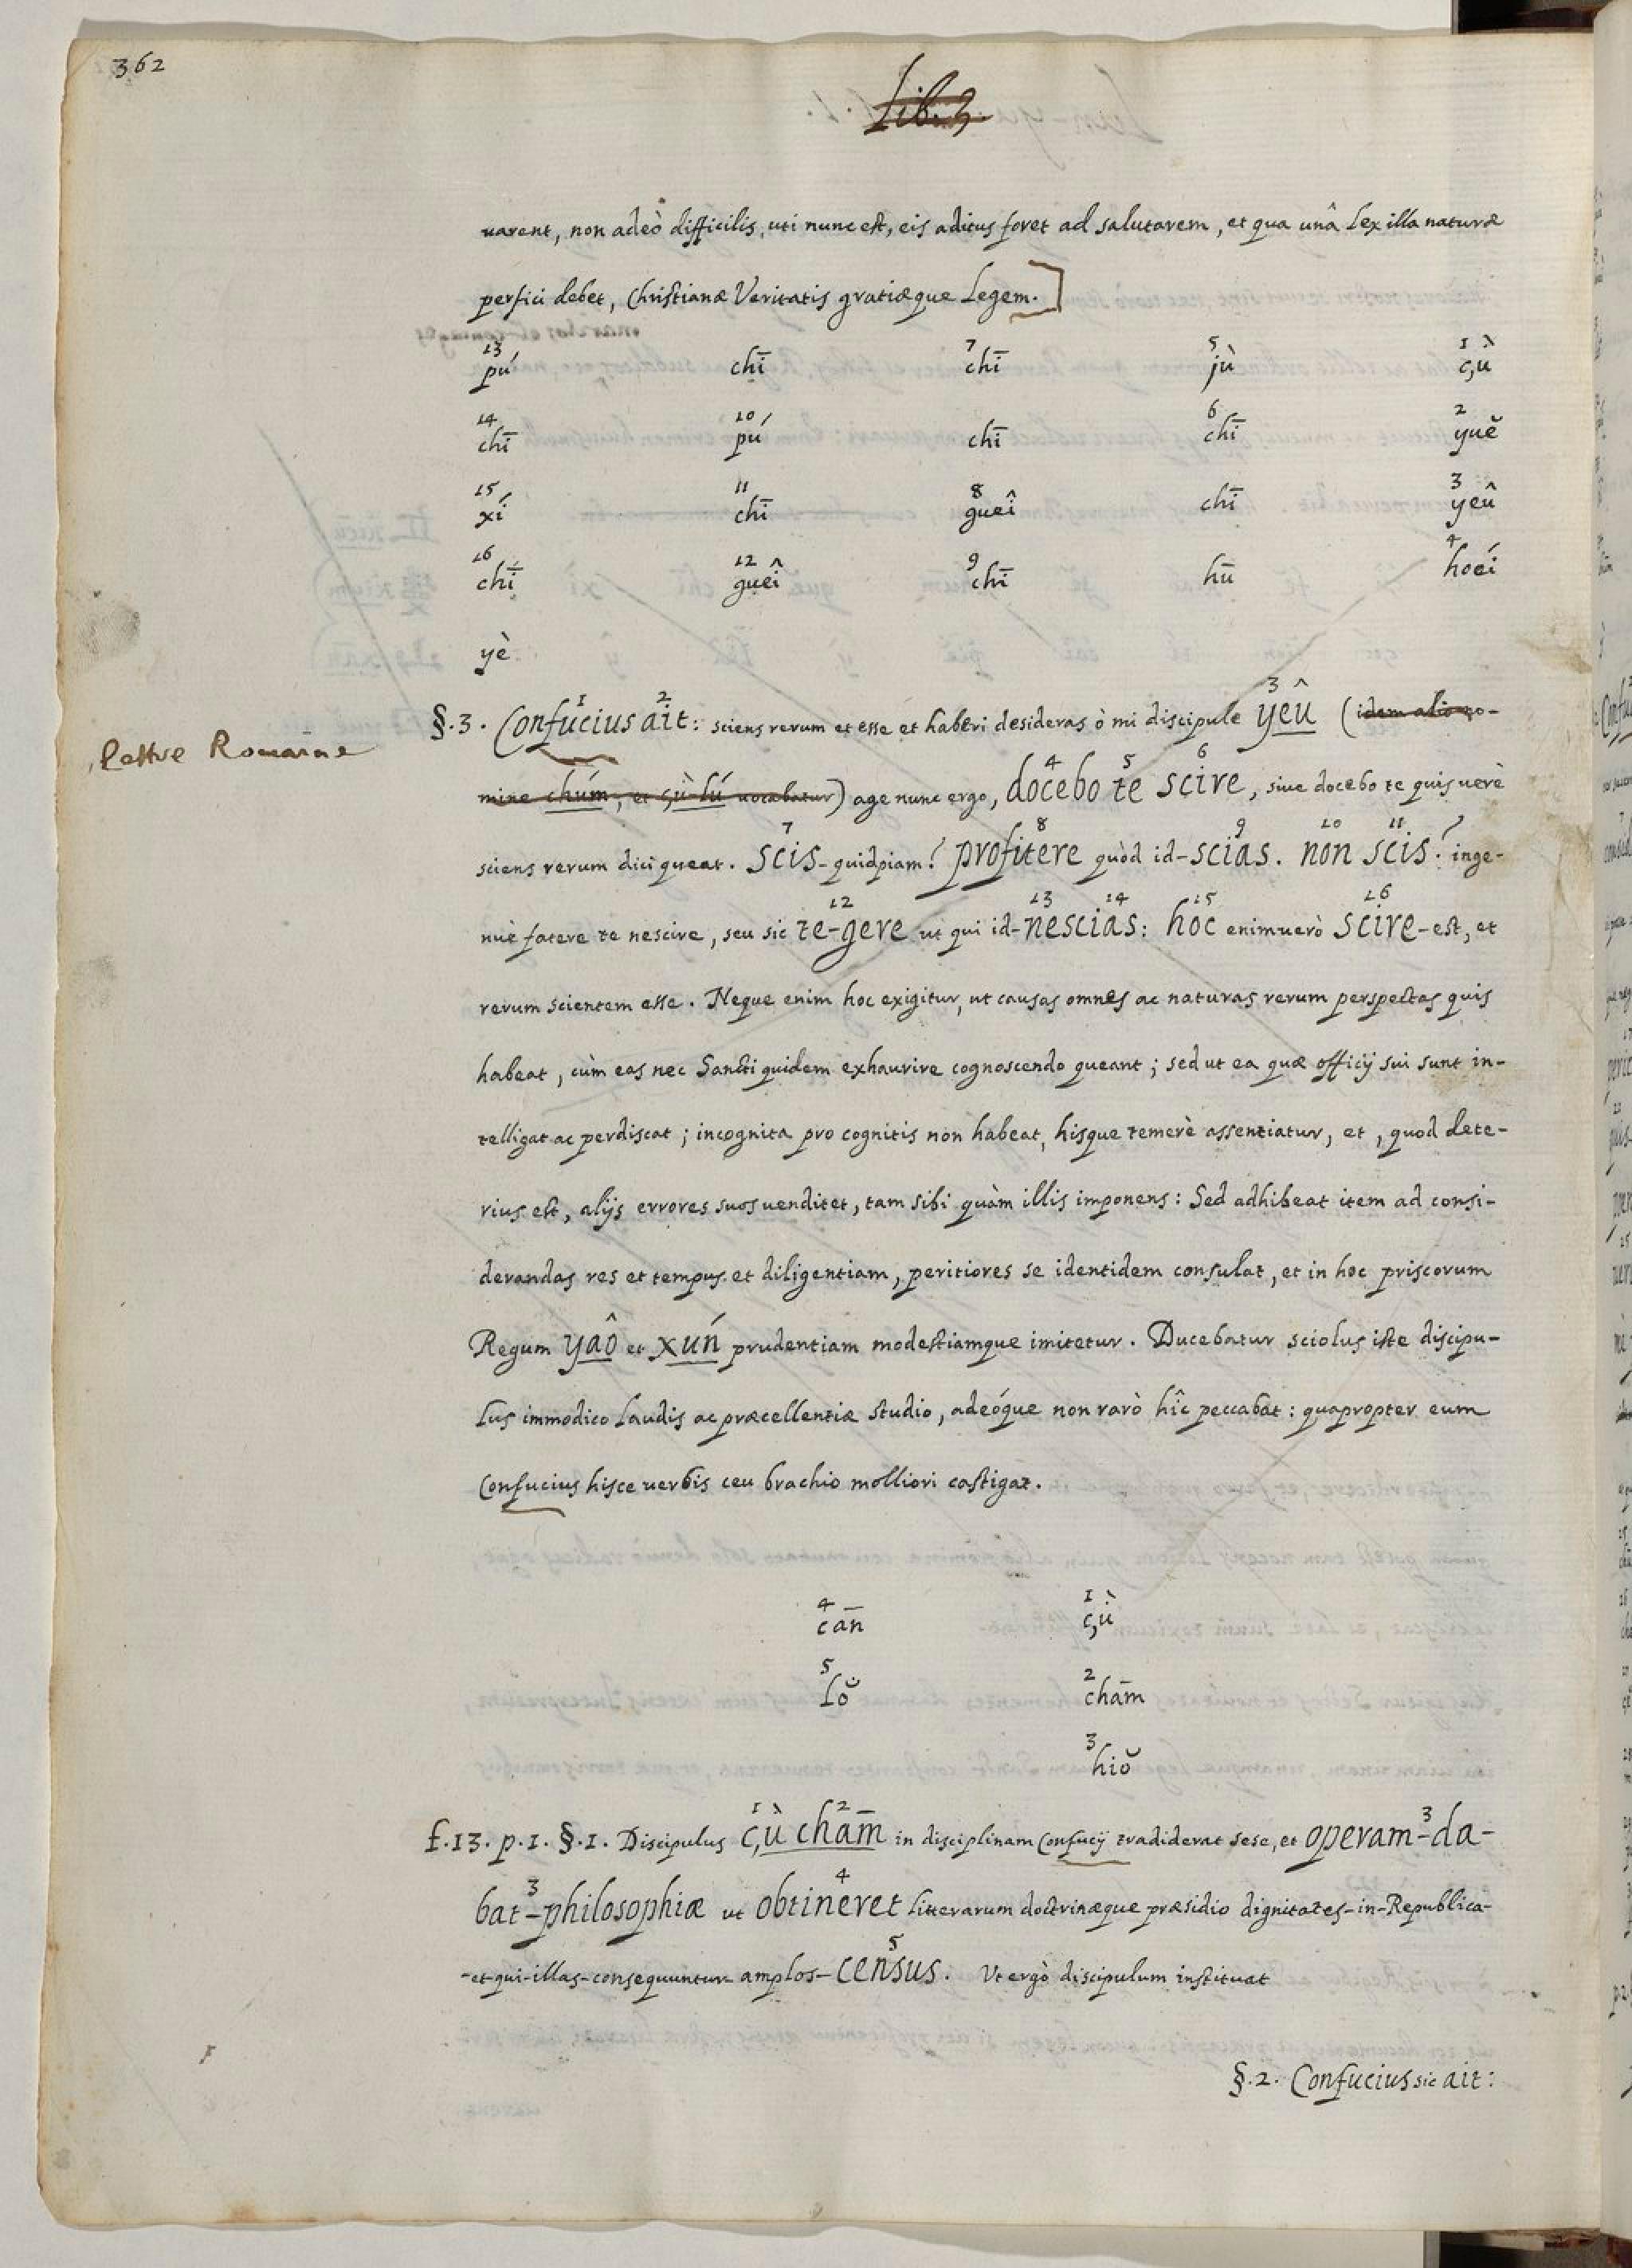 362
Lib. 3.
varent, non adeò difficilis, uti nunc est, eis aditus foret ad salutarem, et qua unâ Lex illa naturæ
perfici debet, Christianæ Veritatis gratiæque Legem.]
13 pú chī 7 chī 5 jù 1 çù
14 chī 10 pú chī 6 chī 2 yuĕ
15 xí 11 chī 8 gueî chī 3 yeû
16 chī 12 gueî 9 chī hū 4 hoéi
yè
§.3. Confucius 1 ait 2: sciens rerum et esse et haberi desideras ò mi discipule yeû 3 (idem alio no-
lettre Romaine
mine chúm, et çù-lú vocabatur) age nunc ergo, docebo 4 te 5 scire 6, sive docebo te quis verè
sciens rerum dici queat. Scis 7-quidpiam? profitere 8 quòd id-scias 9. non 10 scis 11? inge-
nuè fatere te nescire, seu sic te-gere 12 ut qui id-nescias 13 14: hoc 15 enimverò scire 16-est, et
rerum scientem esse. Neque enim hoc exigitur, ut causas omnes ac naturas rerum perspectas quis
habeat, cùm eas nec Sancti quidem exhaurire cognoscendo queant; sed ut ea quæ officij sui sunt in-
telligat ac perdiscat; incognita pro cognitis non habeat, hisque temerè assentiatur, et, quod dete-
rius est, alijs errores suos venditet, tam sibi quàm illis imponens: Sed adhibeat item ad consi-
derandas res et tempus et diligentiam, peritiores se identidem consulat, et in hoc priscorum
Regum yaô et xún prudentiam modestiamque imitetur. Ducebatur sciolus iste discipu-
lus immodico laudis ac præcellentiæ studio, adeóque non rarò hîc peccabat: quapropter eum
Confucius hisce verbis ceu brachio molliori castigat.
4 cān 1 çù
5 lŏ 2 chām
3 hiŏ
f.13. p.1. §.1. Discipulus çù 1 chām 2 in disciplinam Confucij tradiderat sese, et operam-da- 3
bat-philosophiæ 3 ut obtineret 4 litterarum doctrinæque præsidio dignitates-in-Republica-
-et-qui-illas-consequuntur-amplos-census 5. Ut ergò discipulum instituat
§.2. Confucius sic ait: